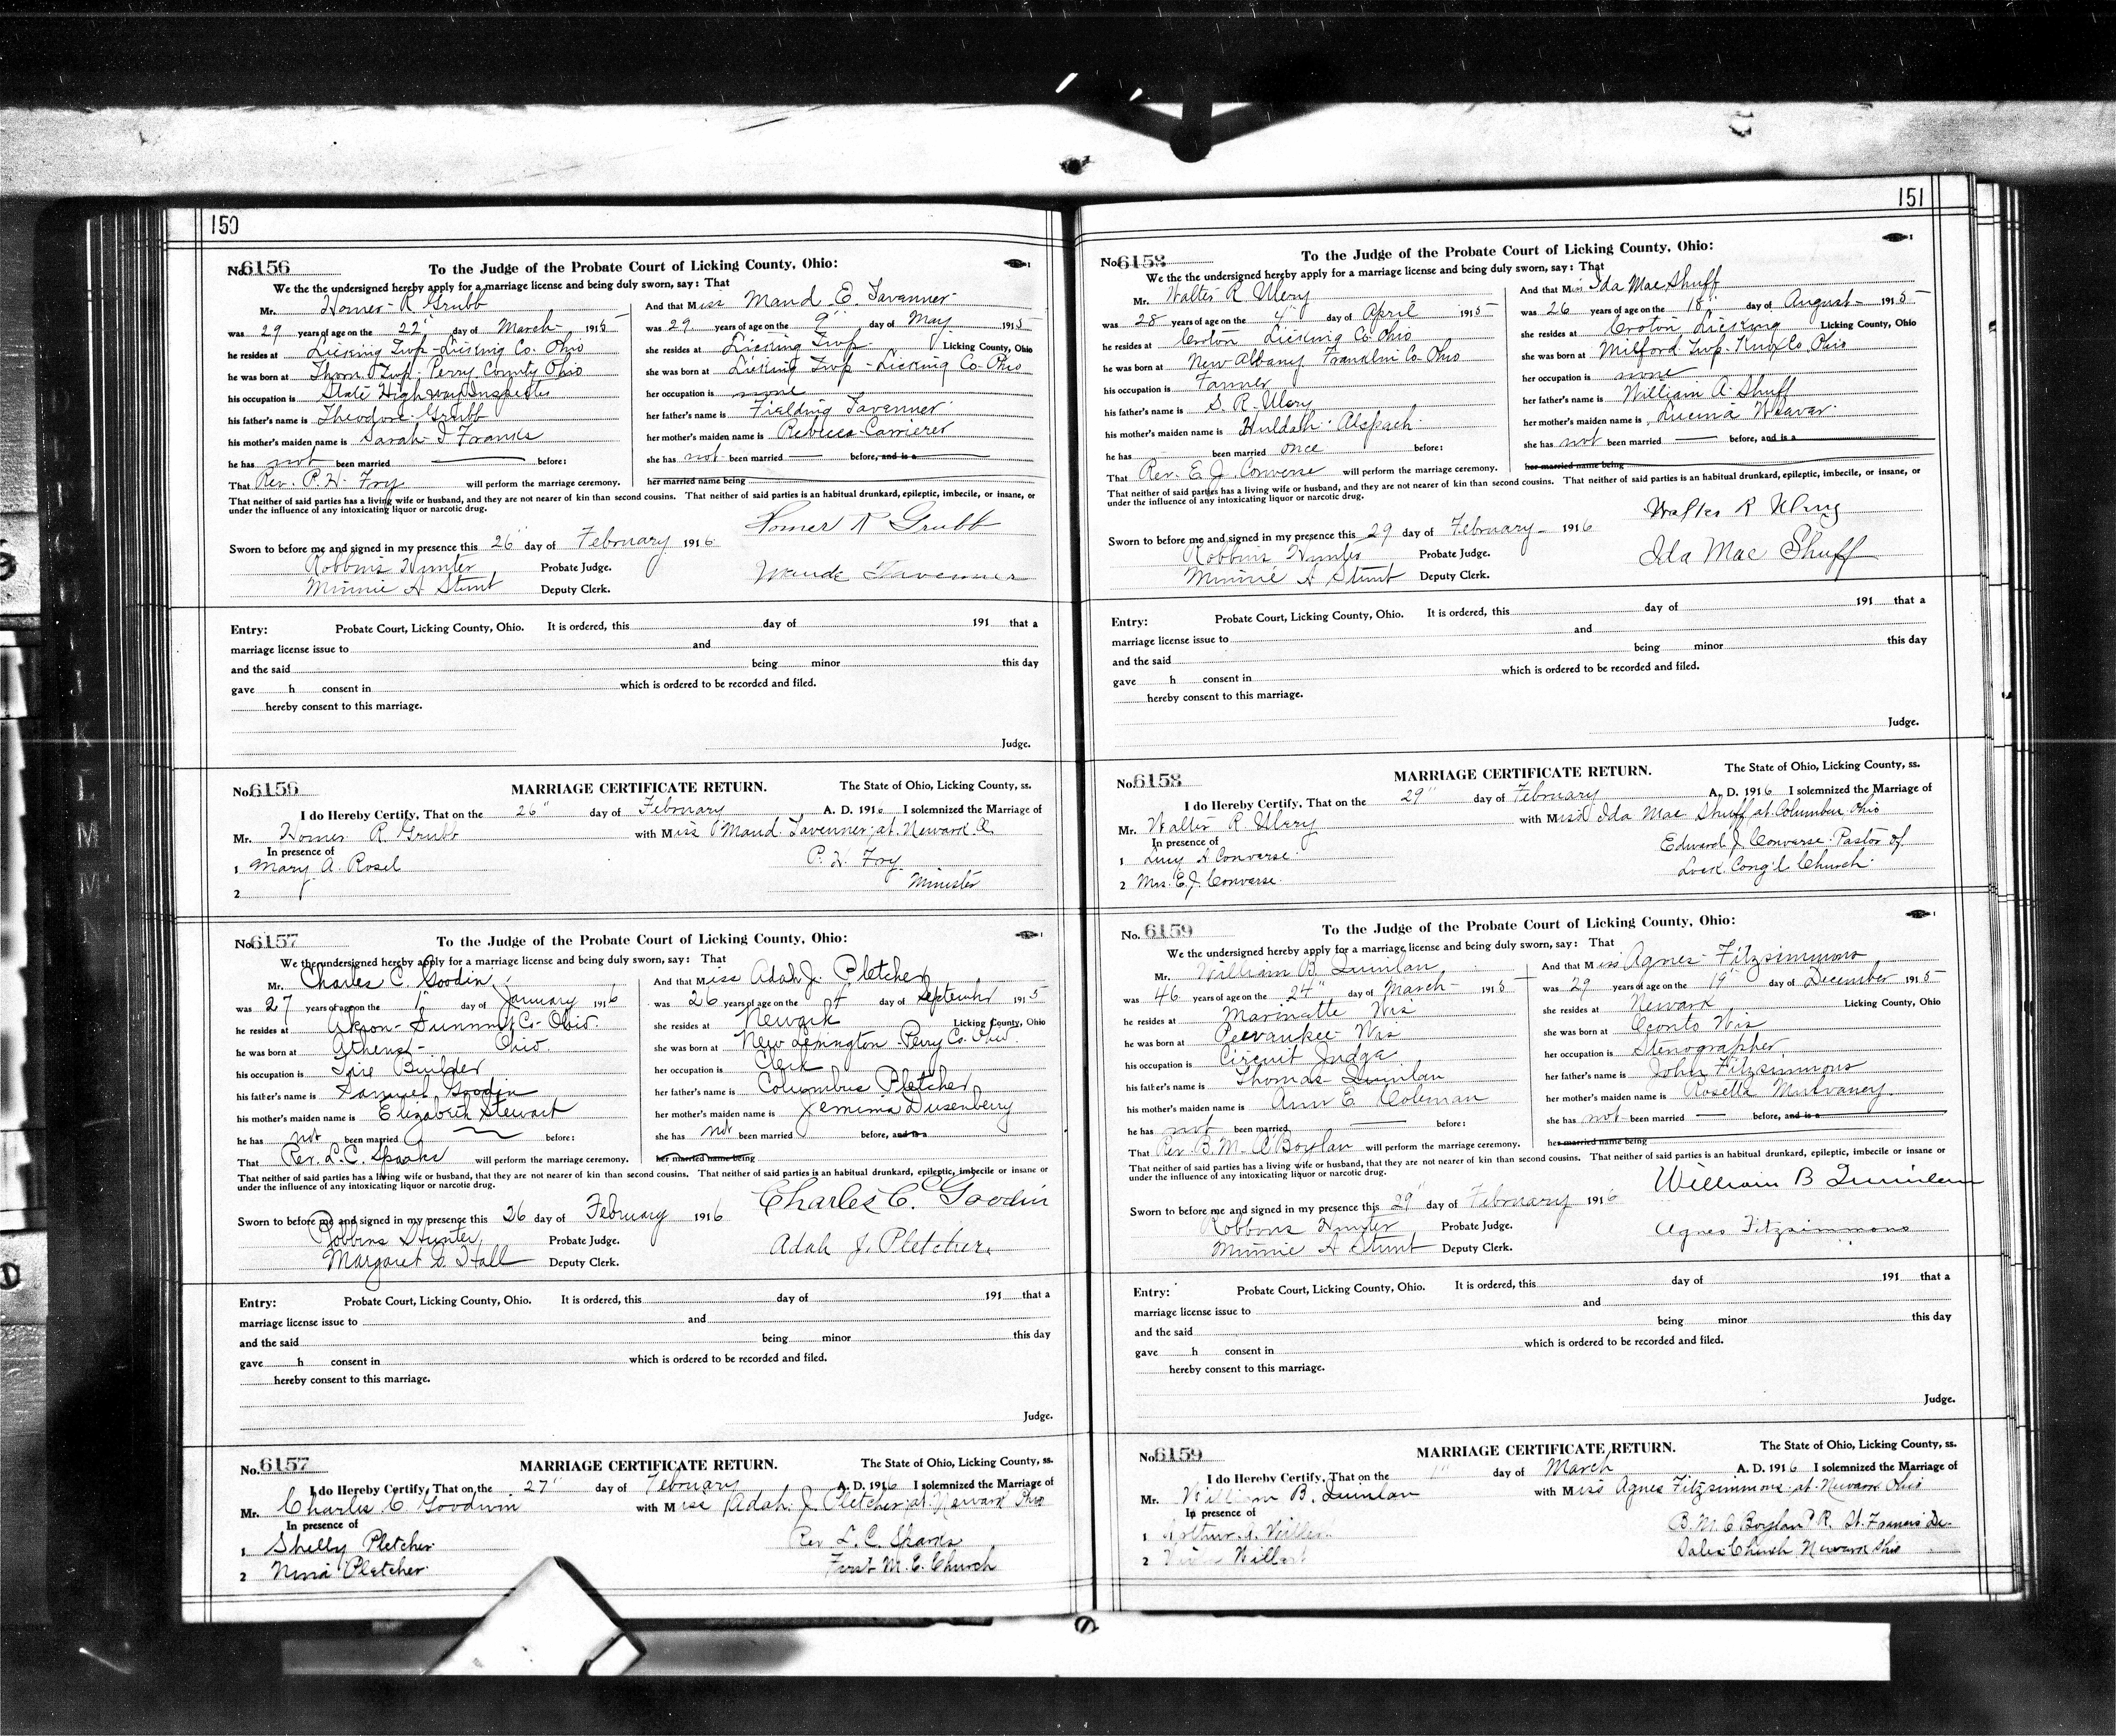 150
No. 6156 To the Judge of the Probate Court of Licking County, Ohio:
We the the undersigned hereby apply for a marriage license and being duly sworn, say: That
Mr. Homer R Grubb
was 29 years of age on the 22" day of March 1915
he resides at Licking Twp - Licking Co. Ohio
he was born at Thorn Twp. Perry County Ohio
his occupation is State Highway Inspector
his father's name is Theodore Grubb
his mother's maiden name is Sarah J Franks
he has not been married before:
That Rev. P. H. Fry will perform the marriage ceremony.
And that Miss Maud E. Tavenner
was 29 years of age on the 9" day of May 1915
she resides at Licking Twp. Licking County, Ohio
she was born at Licking Twp - Licking Co. Ohio
her occupation is none
her father's name is Fielding Tavenner
her mother's maiden name is Rebecca Carrierer
she has not been married before, and is a
her married name being
That neither of said parties has a living wife or husband, and they are not nearer of kin than second cousins. That neither of said parties is an habitual drunkard, epileptic, imbecile, or insane, or
under the influence of any intoxicating liquor or narcotic drug.
Homer R Grubb
Sworn to before me and signed in my presence this 26 day of February 1916
Robbins Hunter Probate Judge.
Maude Tavenner
Minnie A Stunt Deputy Clerk.
Entry: Probate Court, Licking County, Ohio. It is ordered, this day of 191 that a
marriage license issue to and
and the said being minor this day
gave h consent in which is ordered to be recorded and filed.
hereby consent to this marriage.
Judge.
No. 6156 MARRIAGE CERTIFICATE RETURN. The State of Ohio, Licking County, ss.
I do Hereby Certify, That on the 26" day of February A. D. 1916 I solemnized the Marriage of
Mr. Homer R Grubb with Miss Maud Tavenner at Newark O.
In presence of P. H. Fry
1 Mary A. Rosel Minister
2
No. 6157 To the Judge of the Probate Court of Licking County, Ohio:
We the undersigned hereby apply for a marriage license and being duly sworn, say: That
Mr. Charles C. Goodin
was 27 years of age on the 1" day of January 1916
he resides at Akron - Summit Co - Ohio.
he was born at Athens - Ohio.
his occupation is Tire Builder
his father's name is Samuel Goodin
his mother's maiden name is Elizabeth Stewart
he has not been married before:
That Rev. L. C. Sparks will perform the marriage ceremony.
And that Miss Adah J. Pletcher
was 26 years of age on the 4 day of September 1915
she resides at Newark Licking County, Ohio
she was born at New Lexington Perry Co. Ohio.
her occupation is Clerk
her father's name is Columbus Pletcher
her mother's maiden name is Jemima Dusenberry
she has not been married before, and is a
her married name being
That neither of said parties has a living wife or husband, that they are not nearer of kin than second cousins. That neither of said parties is an habitual drunkard, epileptic, imbecile or insane or
under the influence of any intoxicating liquor or narcotic drug.
Charles C. Goodin
Sworn to before me and signed in my presence this 26 day of February 1916
Robbins Hunter Probate Judge.
Adah J. Pletcher.
Margaret D. Hall Deputy Clerk.
Entry: Probate Court, Licking County, Ohio. It is ordered, this day of 191 that a
marriage license issue to and
and the said being minor this day
gave h consent in which is ordered to be recorded and filed.
hereby consent to this marriage.
Judge.
No. 6157 MARRIAGE CERTIFICATE RETURN. The State of Ohio, Licking County, ss.
I do Hereby Certify, That on the 27" day of February A. D. 1916 I solemnized the Marriage of
Mr. Charles C. Goodwin with Miss Adah J. Pletcher at Newark Ohio
In presence of Rev L. C. Sparks
1 Shelly Pletcher First M. E. Church
2 Nina Pletcher
151
No. 6158 To the Judge of the Probate Court of Licking County, Ohio:
We the the undersigned hereby apply for a marriage license and being duly sworn, say: That
Mr. Walter R Ulery
was 28 years of age on the 4" day of April 1915
he resides at Croton Licking Co Ohio
he was born at New Albany Franklin Co Ohio
his occupation is Farmer
his father's name is S. R. Ulery
his mother's maiden name is Huldah Alspach
he has been married once before:
That Rev. E. J. Converse will perform the marriage ceremony.
And that Miss Ida Mae Shuff
was 26 years of age on the 18" day of August 1915
she resides at Croton Licking Licking County, Ohio
she was born at Milford Twp. Knox Co. Ohio
her occupation is none
her father's name is William A. Shuff
her mother's maiden name is Lucina Weaver
she has not been married before, and is a
her married name being
That neither of said parties has a living wife or husband, and they are not nearer of kin than second cousins. That neither of said parties is an habitual drunkard, epileptic, imbecile, or insane, or
under the influence of any intoxicating liquor or narcotic drug.
Walter R Ulery
Sworn to before me and signed in my presence this 29 day of February 1916
Robbins Hunter Probate Judge.
Ida Mae Shuff
Minnie A Stunt Deputy Clerk.
Entry: Probate Court, Licking County, Ohio. It is ordered, this day of 191 that a
marriage license issue to and
and the said being minor this day
gave h consent in which is ordered to be recorded and filed.
hereby consent to this marriage.
Judge.
No. 6158 MARRIAGE CERTIFICATE RETURN. The State of Ohio, Licking County, ss.
I do Hereby Certify, That on the 29" day of February A. D. 1916 I solemnized the Marriage of
Mr. Walter R Ulery with Miss Ida Mae Shuff at Columbus Ohio
In presence of Edward J. Converse Pastor of
1 Lucy A Converse Lock Cong'l Church
2 Mrs. E. J. Converse
No. 6159 To the Judge of the Probate Court of Licking County, Ohio:
We the undersigned hereby apply for a marriage license and being duly sworn, say: That
Mr. William B. Quinlan
was 46 years of age on the 24" day of March 1915
he resides at Marinette Wis
he was born at Pewaukee Wis
his occupation is Circuit Judge
his father's name is Thomas Quinlan
his mother's maiden name is Ann E. Coleman
he has not been married before:
That Rev B. M. O'Boylan will perform the marriage ceremony.
And that Miss Agnes Fitzsimmons
was 29 years of age on the 19" day of December 1915
she resides at Newark Licking County, Ohio
she was born at Oconto Wis
her occupation is Stenographer
her father's name is John Fitzsimmons
her mother's maiden name is Rosella Mulvaney
she has not been married before, and is a
her married name being
That neither of said parties has a living wife or husband, that they are not nearer of kin than second cousins. That neither of said parties is an habitual drunkard, epileptic, imbecile or insane or
under the influence of any intoxicating liquor or narcotic drug.
William B Quinlan
Sworn to before me and signed in my presence this 29" day of February 1916
Robbins Hunter Probate Judge.
Agnes Fitzsimmons
Minnie A Stunt Deputy Clerk.
Entry: Probate Court, Licking County, Ohio. It is ordered, this day of 191 that a
marriage license issue to and
and the said being minor this day
gave h consent in which is ordered to be recorded and filed.
hereby consent to this marriage.
Judge.
No. 6159 MARRIAGE CERTIFICATE RETURN. The State of Ohio, Licking County, ss.
I do Hereby Certify, That on the 1" day of March A. D. 1916 I solemnized the Marriage of
Mr. William B. Quinlan with Miss Agnes Fitzsimmons at Newark Ohio
In presence of B. M. O'Boylan P. R. St. Francis De
1 Arthur A. Sales Church Newark Ohio
2